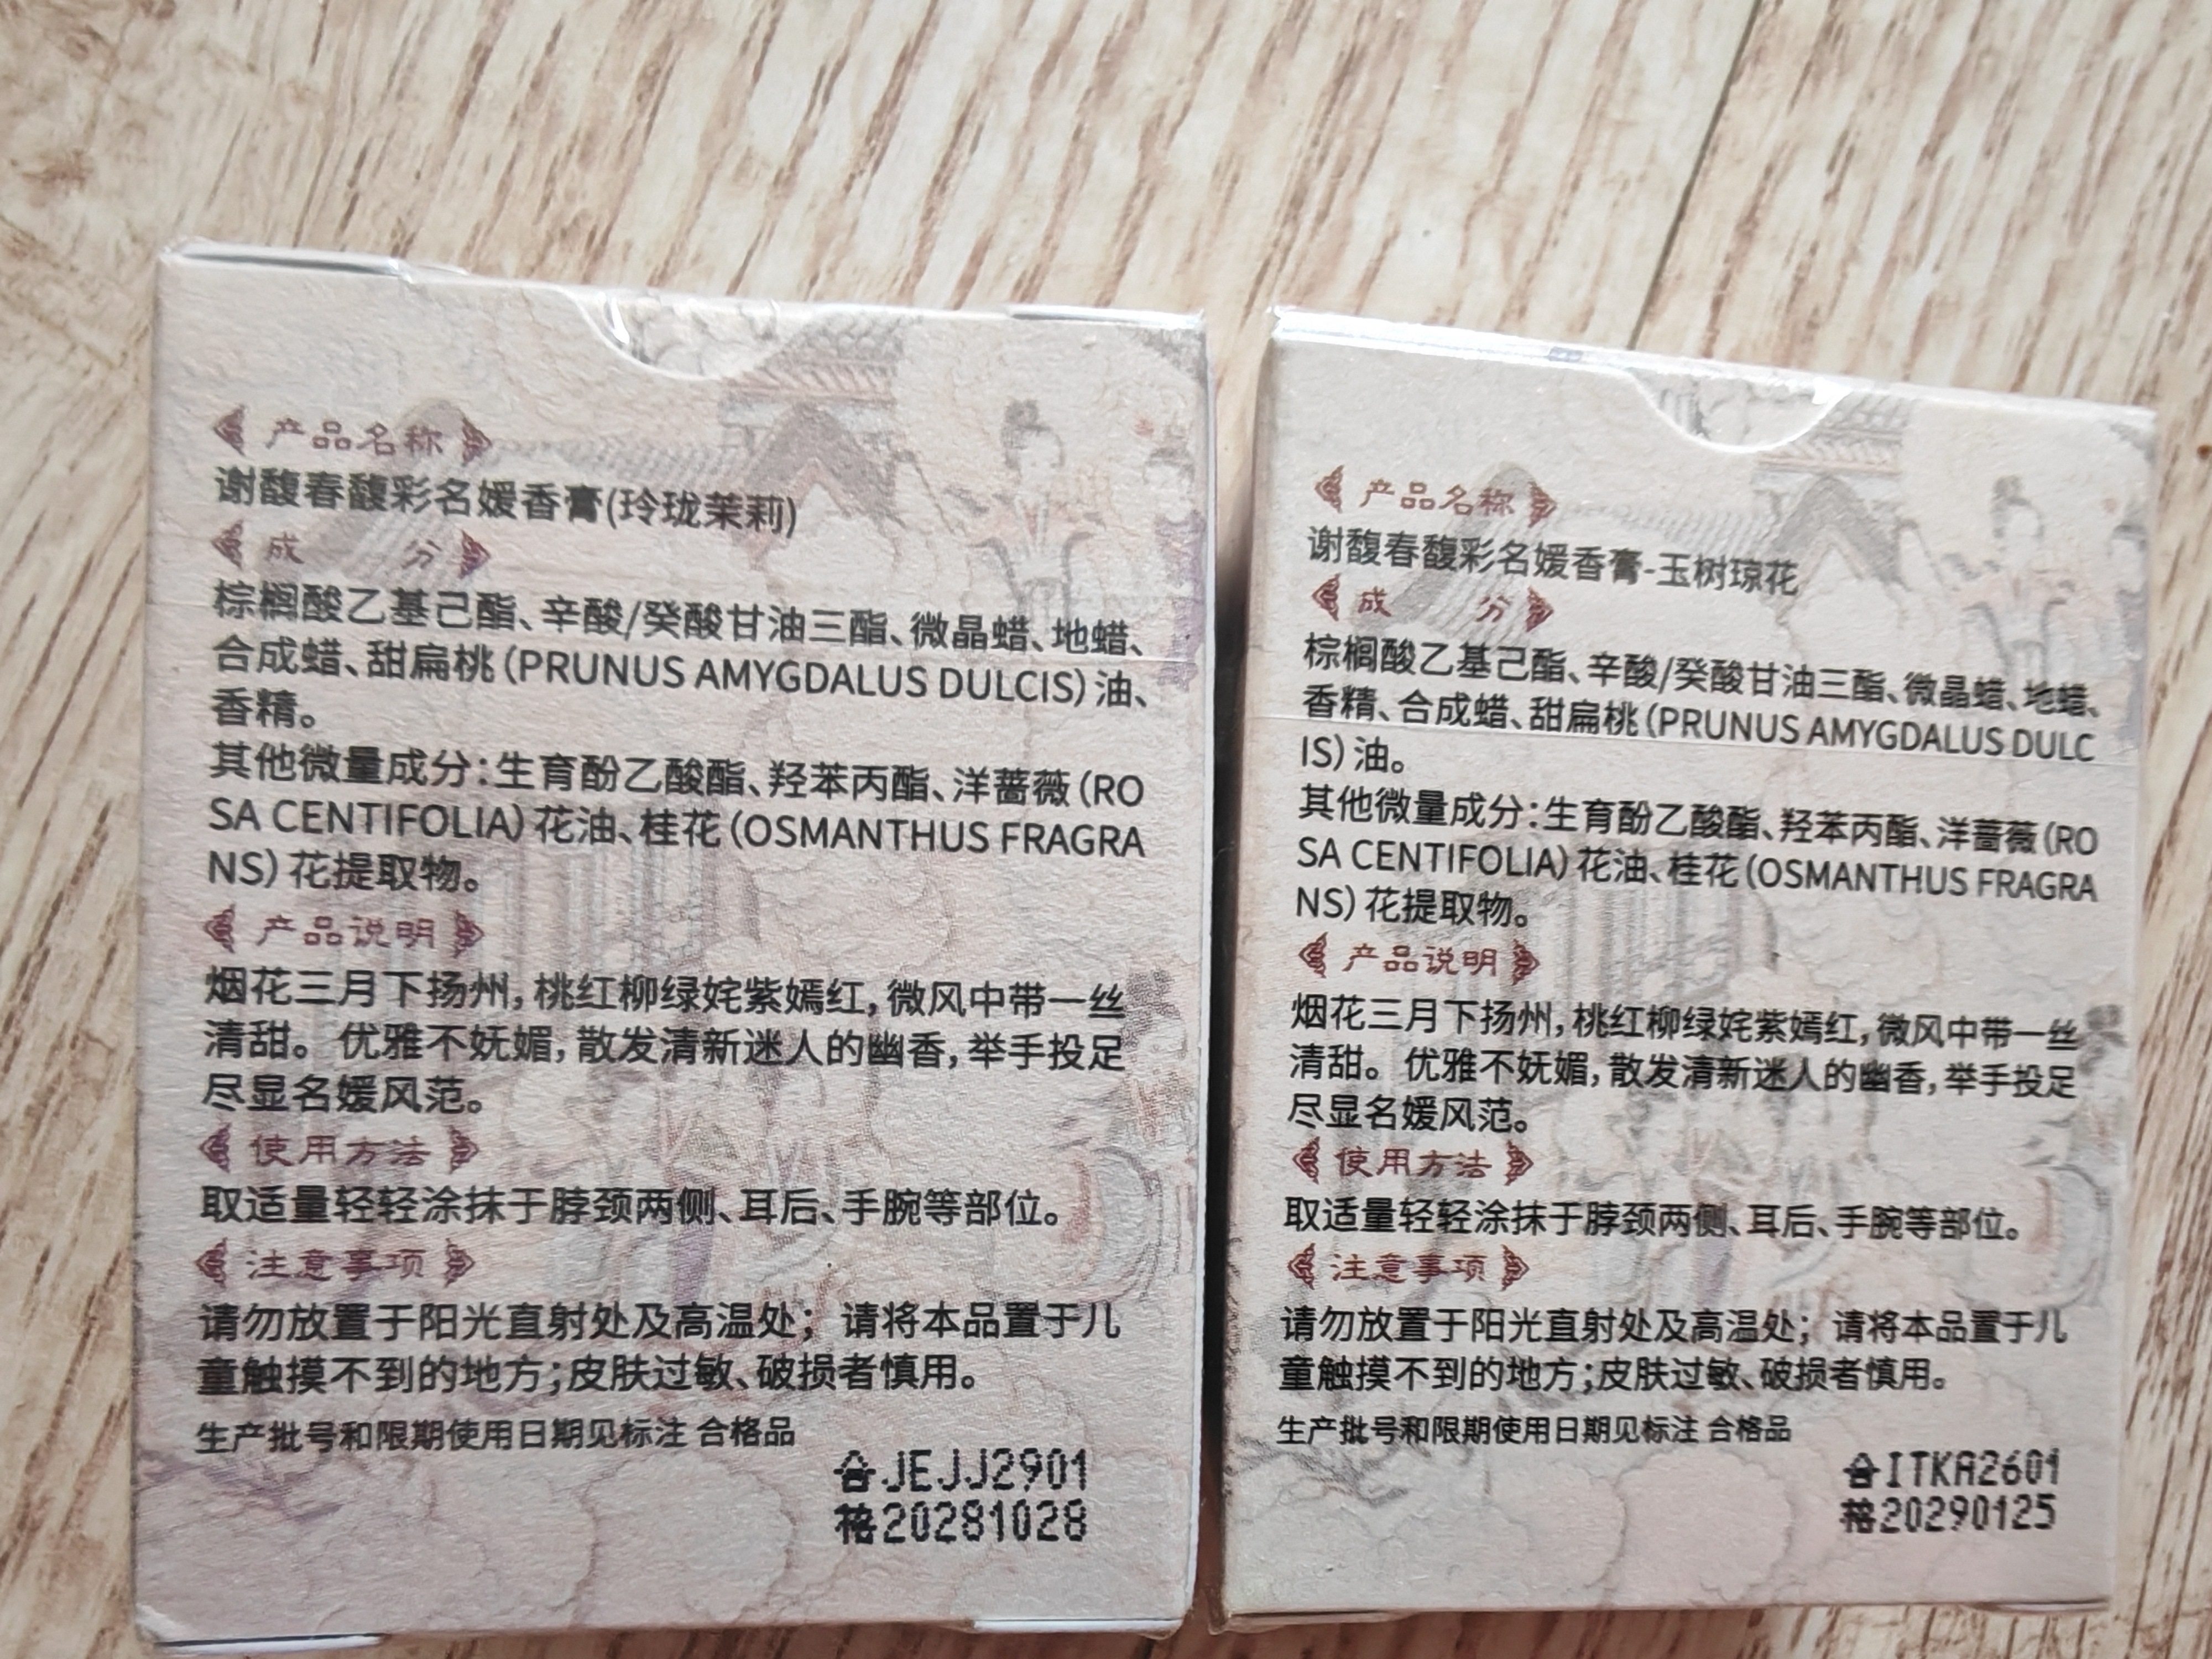 产品名称
谢馥春馥彩名媛香膏(玲珑茉莉)
成 分
棕榈酸乙基己酯、辛酸/癸酸甘油三酯、微晶蜡、地蜡、
合成蜡、甜扁桃(PRUNUS AMYGDALUS DULCIS)油、
香精。
其他微量成分:生育酚乙酸酯、羟苯丙酯、洋蔷薇(RO
SA CENTIFOLIA)花油、桂花(OSMANTHUS FRAGRA
NS)花提取物。
产品说明
烟花三月下扬州,桃红柳绿姹紫嫣红,微风中带一丝
清甜。优雅不妩媚,散发清新迷人的幽香,举手投足
尽显名媛风范。
使用方法
取适量轻轻涂抹于脖颈两侧、耳后、手腕等部位。
注意事项
请勿放置于阳光直射处及高温处;请将本品置于儿
童触摸不到的地方;皮肤过敏、破损者慎用。
生产批号和限期使用日期见标注 合格品
合JEJJ2901
格20281028
产品名称
谢馥春馥彩名媛香膏-玉树琼花
成 分
棕榈酸乙基己酯、辛酸/癸酸甘油三酯、微晶蜡、地蜡、
香精、合成蜡、甜扁桃(PRUNUS AMYGDALUS DULC
IS)油。
其他微量成分:生育酚乙酸酯、羟苯丙酯、洋蔷薇(RO
SA CENTIFOLIA)花油、桂花(OSMANTHUS FRAGRA
NS)花提取物。
产品说明
烟花三月下扬州,桃红柳绿姹紫嫣红,微风中带一丝
清甜。优雅不妩媚,散发清新迷人的幽香,举手投足
尽显名媛风范。
使用方法
取适量轻轻涂抹于脖颈两侧、耳后、手腕等部位。
注意事项
请勿放置于阳光直射处及高温处;请将本品置于儿
童触摸不到的地方;皮肤过敏、破损者慎用。
生产批号和限期使用日期见标注 合格品
合ITKA2601
格20290125